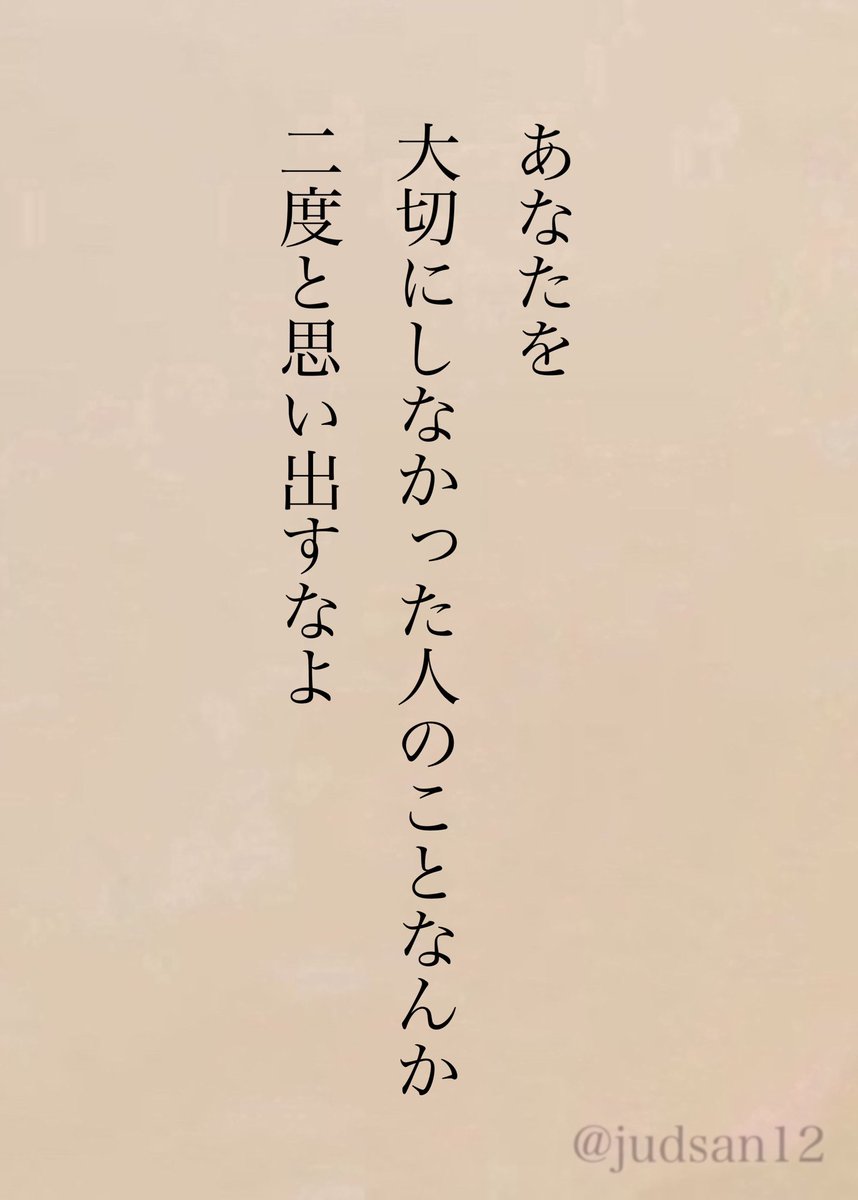 あなたを
大切にしなかった人のことなんか
二度と思い出すなよ
@judsan12